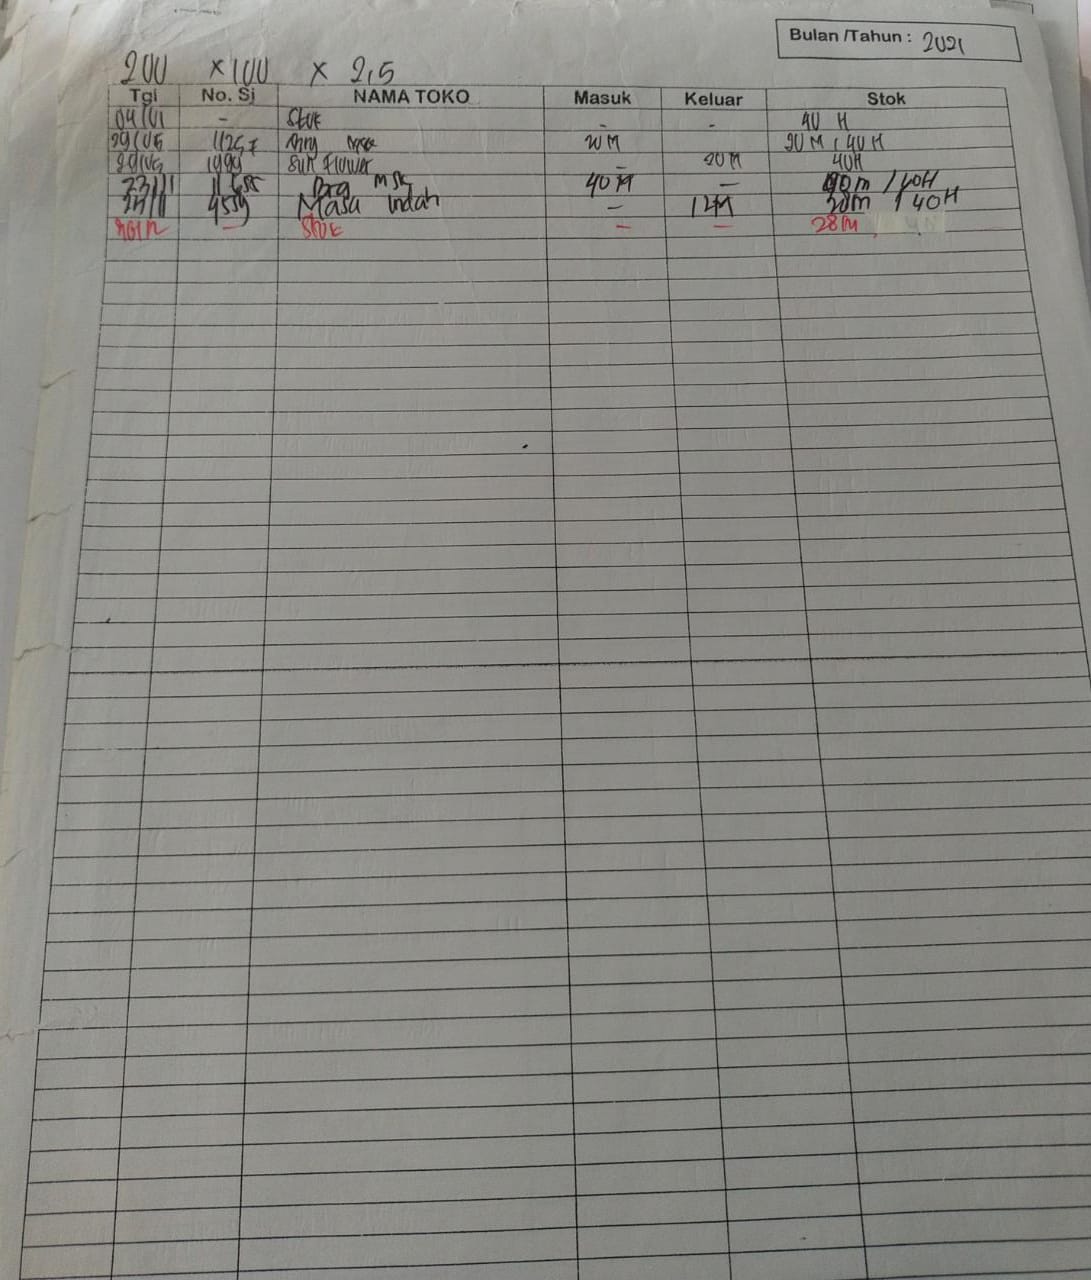 Bulan /Tahun : 2021
200 x 100 x 2,5
Tgl No. Sj NAMA TOKO Masuk Keluar Stok
04/01 - Stok - - 40 H
29/05 11257 Brg 20 M 20 M / 40 H
1999 Sun Flower - 20 M 40H
23/11 Brg msk 40 M - 40m / 40H
4559 Masa Indah - 12M 28m / 40H
- Stok - - 28 M